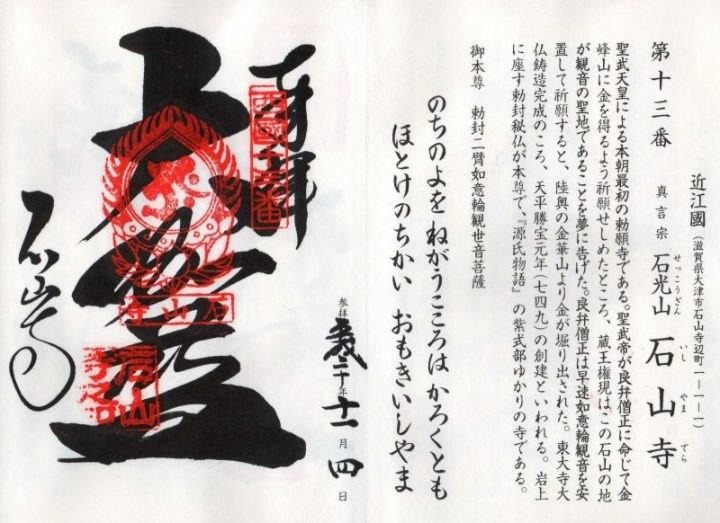 近江國(滋賀県大津市石山寺辺町一ー一ー一)
第十三番 真言宗 石光山 石山寺
せっこうざん いし やま でら
聖武天皇による本朝最初の勅願寺である。聖武帝が良弁僧正に命じて金
峰山に金を得るよう祈願せしめたところ、蔵王権現はこの石山の地
が観音の聖地であることを夢に告げた。良弁僧正は早速如意輪観音を安
置して祈願すると、陸奥の金華山より金が堀り出された。東大寺大
仏鋳造完成のころ、天平勝宝元年(七四九)の創建といわれる。岩上
に座す勅封秘仏が本尊で、『源氏物語』の紫式部ゆかりの寺である。
御本尊 勅封二臂如意輪観世音菩薩
のちのよを ねがうこころは かろくとも
ほとけのちかい おもきいしやま
奉拝
西國十三番
参拝 二十年十一月四日
石山寺
石山寺